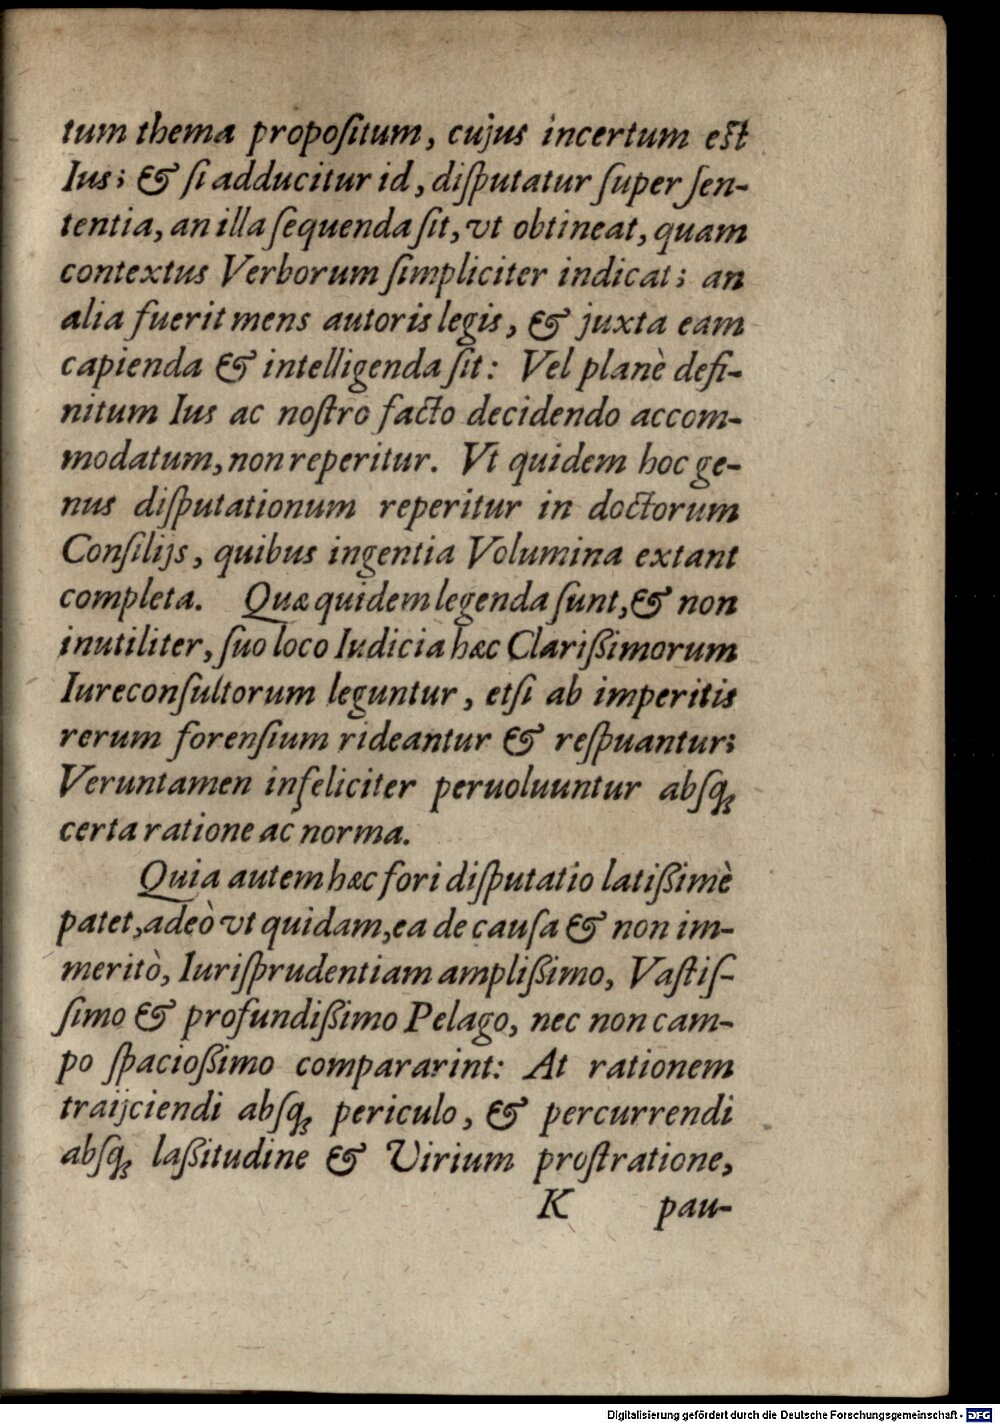 tum thema propoſitum, cujus incertum eſt
Ius; & ſi adducitur id, diſputatur ſuper ſen-
tentia, an illa ſequenda ſit, vt obtineat, quam
contextus Verborum ſimpliciter indicat; an
alia fuerit mens autoris legis, & juxta eam
capienda & intelligenda ſit: Vel planè defi-
nitum Ius ac noſtro facto decidendo accom-
modatum, non reperitur. Vt quidem hoc ge-
nus diſputationum reperitur in doctorum
Conſilijs, quibus ingentia Volumina extant
completa. Quæ quidem legenda ſunt, & non
inutiliter, ſuo loco Iudicia hæc Clarißimorum
Iureconſultorum leguntur, etſi ab imperitis
rerum forenſium rideantur & reſpuantur;
Veruntamen infeliciter peruoluuntur abſq;
certa ratione ac norma.
Quia autem hæc fori diſputatio latißimè
patet, adeò vt quidam, ea de cauſa & non im-
meritò, Iuriſprudentiam amplißimo, Vaſtiſ-
ſimo & profundißimo Pelago, nec non cam-
po ſpacioßimo compararint: At rationem
traijciendi abſq; periculo, & percurrendi
abſq; laßitudine & Virium proſtratione,
K pau-
Digitalisierung gefördert durch die Deutsche Forschungsgemeinschaft - DFG